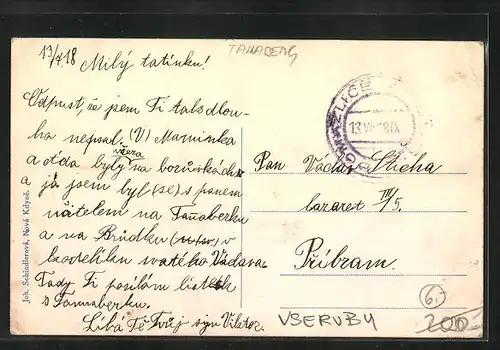 13/7.18
TANABERG
Milý tatínku!
Odpust, že jsem Ti tak dlou-
ho nepsal. (V) Maminka
včera
a Ota byly na borůvkách
a já jsem byl (se) s panem
učitelem na Tanaberku
a na Brůdku v
kostelíku svatého Václava.
Tady Ti posílám lístek
s Tannaberku.
Líbá Tě Tvůj syn
Pan Václav Sticha
lazaret III/5.
Příbram.
13 VII 18
Joh. Schindlerová, Nová Kdyně.
VSERUBY
6.
200